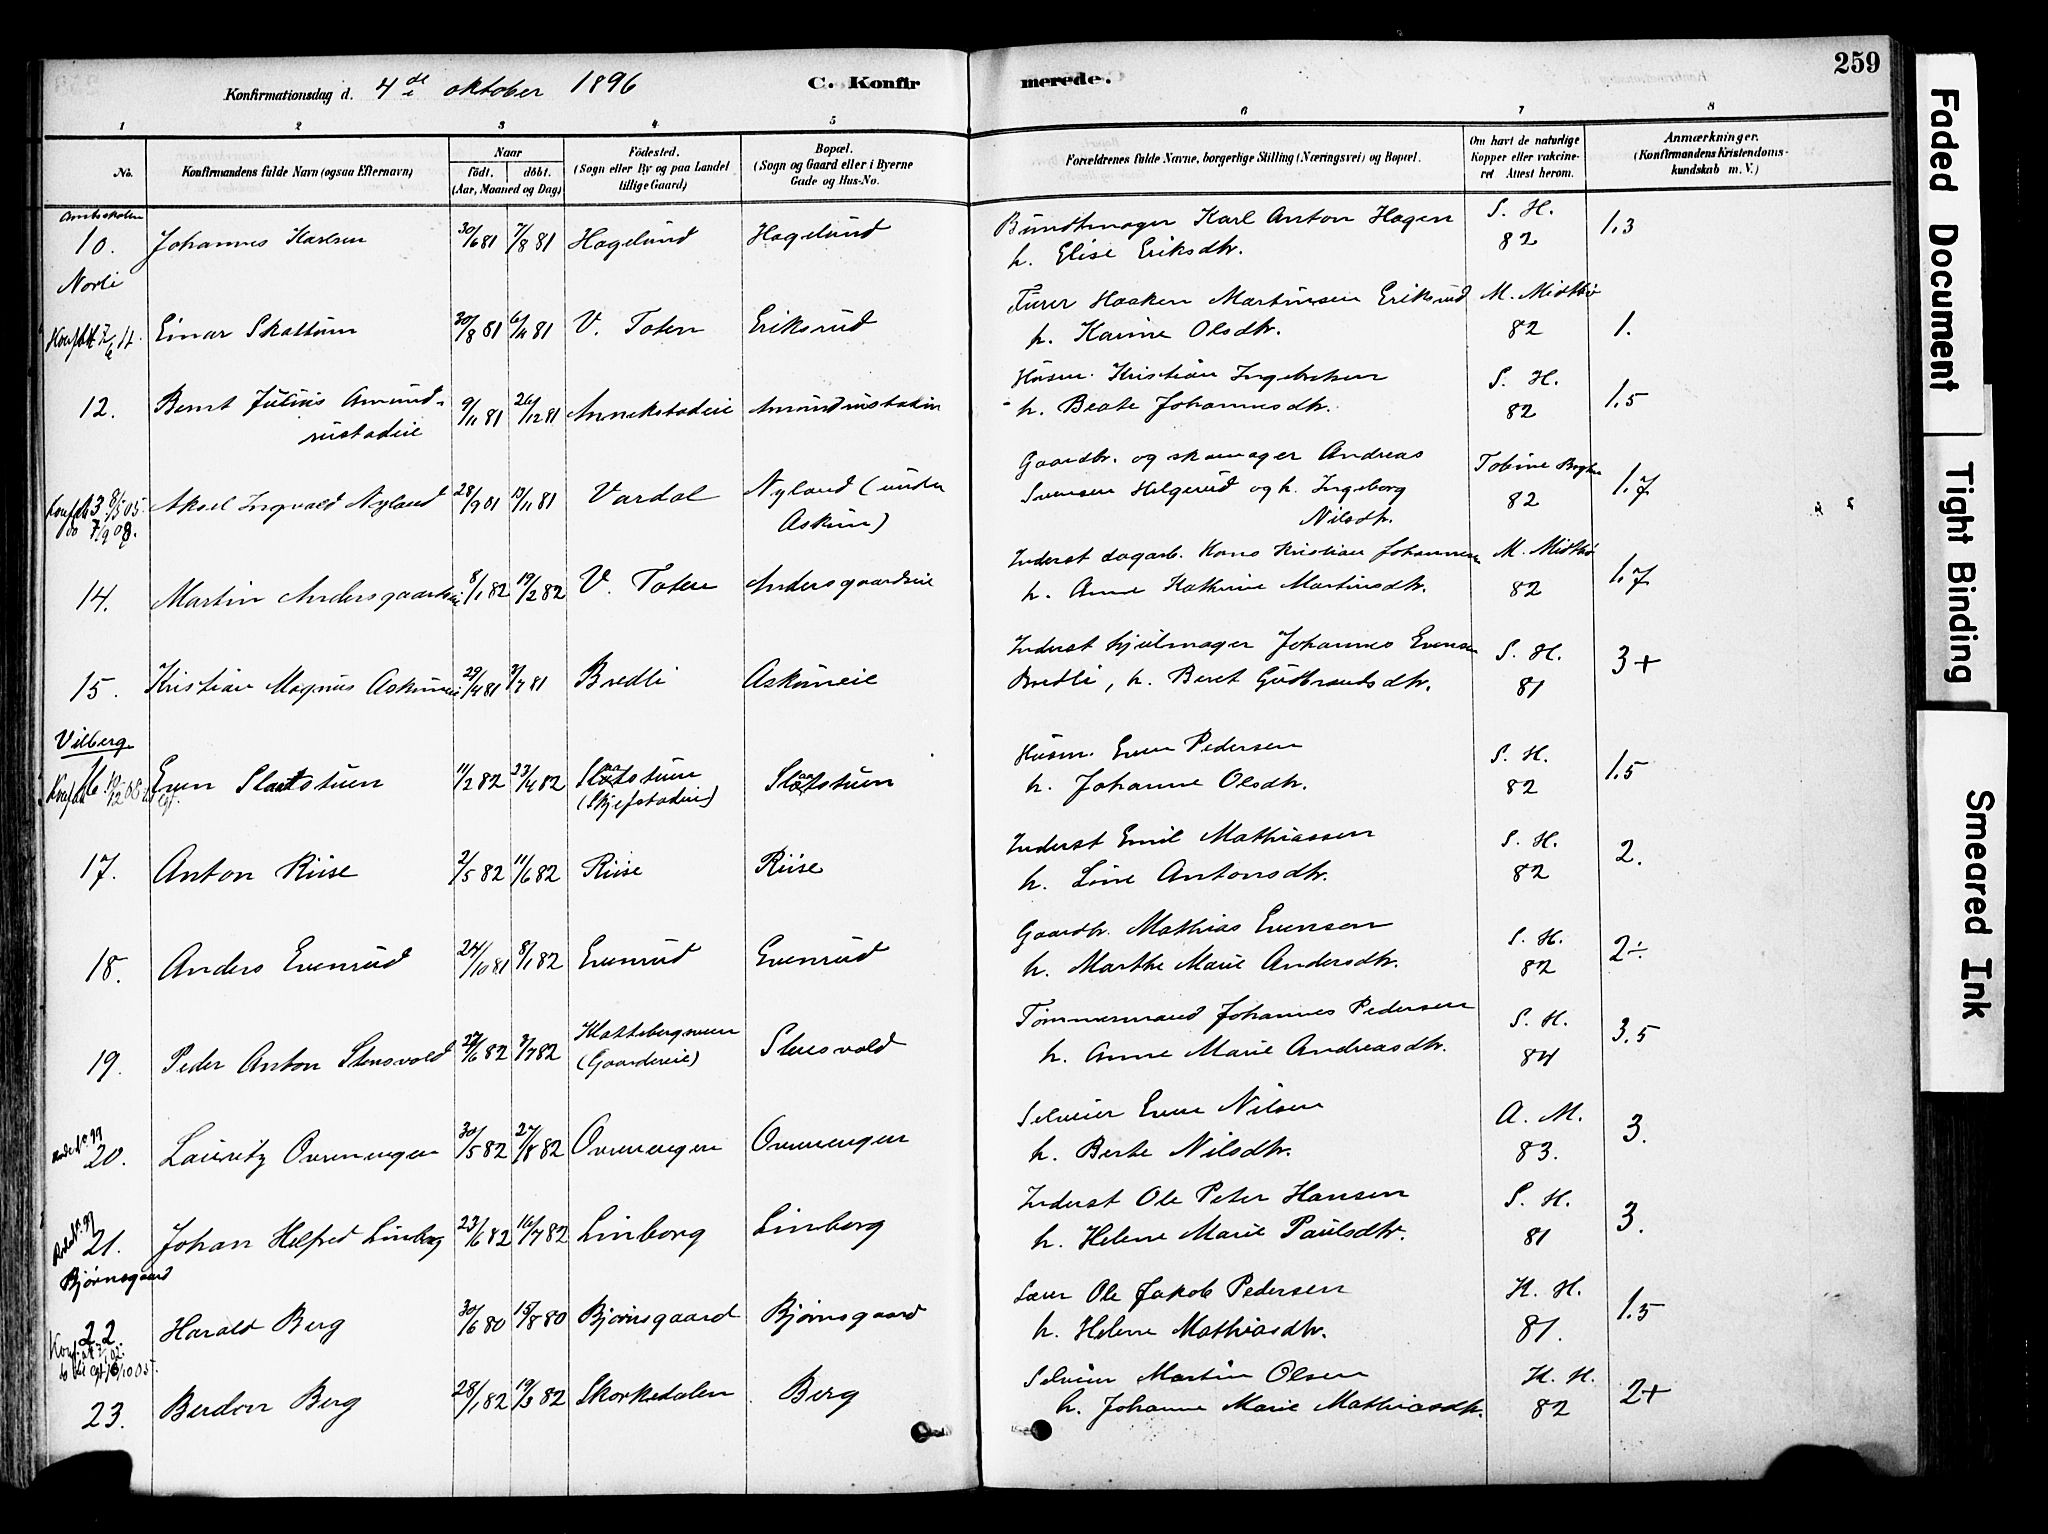 259
Konfirmationsdag d. 4de oktober 1896
C. Konfirmerede.
1 2 3 4. 5 6 7 8
No.
Konfirmandens fulde Navn (ogsaa Efternavn)
Naar
födt. döbt.
(Aar, Maaned og Dag)
Födested.
(Sogn eller By og paa Landet
tillige Gaard)
Bopæl.
(Sogn og Gaard eller i Byerne
Gade og Hus-No.
Forældrenes fulde Navne, borgerlige Stilling (Næringsvei) og Bopæl.
Om havt de naturlige
Kopper eller vakcine-
ret Attest herom.
Anmærkninger.
(Konfirmandens Kristendoms-
kundskab m. V.)
Amtsskolen
10. Johannes Karlsen 30/6 81 7/8 81 Hagelund Hagelund Bundtmager Karl Anton Hagen S. H. 1.3
h. Elise Eriksdtr. 82
Norli
11. Einar Skattum 30/8 81 6/11 81 V. Toten Eriksrud Haaken Martinsen Eriksrud M. Midtbø 1.
h. Karine Olsdtr. 82
12. Bernt Julius Amund- 9/11 81 26/12 81 Husm. Kristian Ingebretsen S. H. 1.5
rustadeie h. Beate Johannesdtr. 82
13 Aksel Ingvald Nyland 28/9 81 13/11 81 Vardal Nyland (under Gaardbr. og skomager Andreas Tobine 1.7
Askim) Svensen Helgerud og h. Ingeborg 82
Nilsdtr.
14. Martin Andersgaardseie 8/1 82 19/2 82 V. Toten Andersgaardseie Inderst dagarb. Hans Kristian Johannesen M. Midtbø 1.7
h. Anne Kathrine Martinsdtr. 82
15. Kristian Magnus Askimeie 29/4 81 3/7 81 Bredli Askimeie Inderst hjulmager Johannes Evensen S. H. 3+
Bredli, h. Beret Gudbrandsdtr. 81
Vilberg
16 Even Slaatstuen 11/2 82 23/4 82 Slaatstuen Slaatstuen Husm. Even Pedersen S. H. 1.5
(Skjefstadeie) h. Johanne Olsdtr. 82
17. Anton Riise 2/5 82 11/6 82 Riise Riise Inderst Emil Mathiassen S. H. 2.
h. Line Antonsdtr. 82
18. Anders Evenrud 24/10 81 8/1 82 Evenrud Evenrud Gaardbr. Mathias Evensen S. H. 2÷
h. Marthe Marie Andersdtr. 82
19. Peder Anton Stensvold 27/6 82 3/7 82 Klattebergsveen Stensvold Tømmermand Johannes Pedersen S. H. 3.5
(Gaardereie) h. Anne Marie Andreasdtr. 84
20. Lauritz Overnengen 30/5 82 27/8 82 Overnengen Overnengen Selveier Even Nilsen A. M. 3.
h. Berte Nilsdtr. 83.
21. Johan Helfred Linborg 23/6 82 16/7 82 Linborg Linborg Inderst Ole Peter Hansen S. H. 3.
h. Helene Marie Paulsdtr. 81
Bjørnsgaard
22. Harald Berg 30/6 80 15/8 80 Bjørnsgaard Bjørnsgaard Ole Jakob Pedersen K. H. 1.5
h. Helene Mathiasdtr. 81.
23. Berdon Berg 28/1 82 19/3 82 Skorkedalen Berg Selveier Martin Olsen K. H. 2+
h. Johanne Marie Mathiasdtr. 82
Faded Document
Tight Binding
Smeared Ink